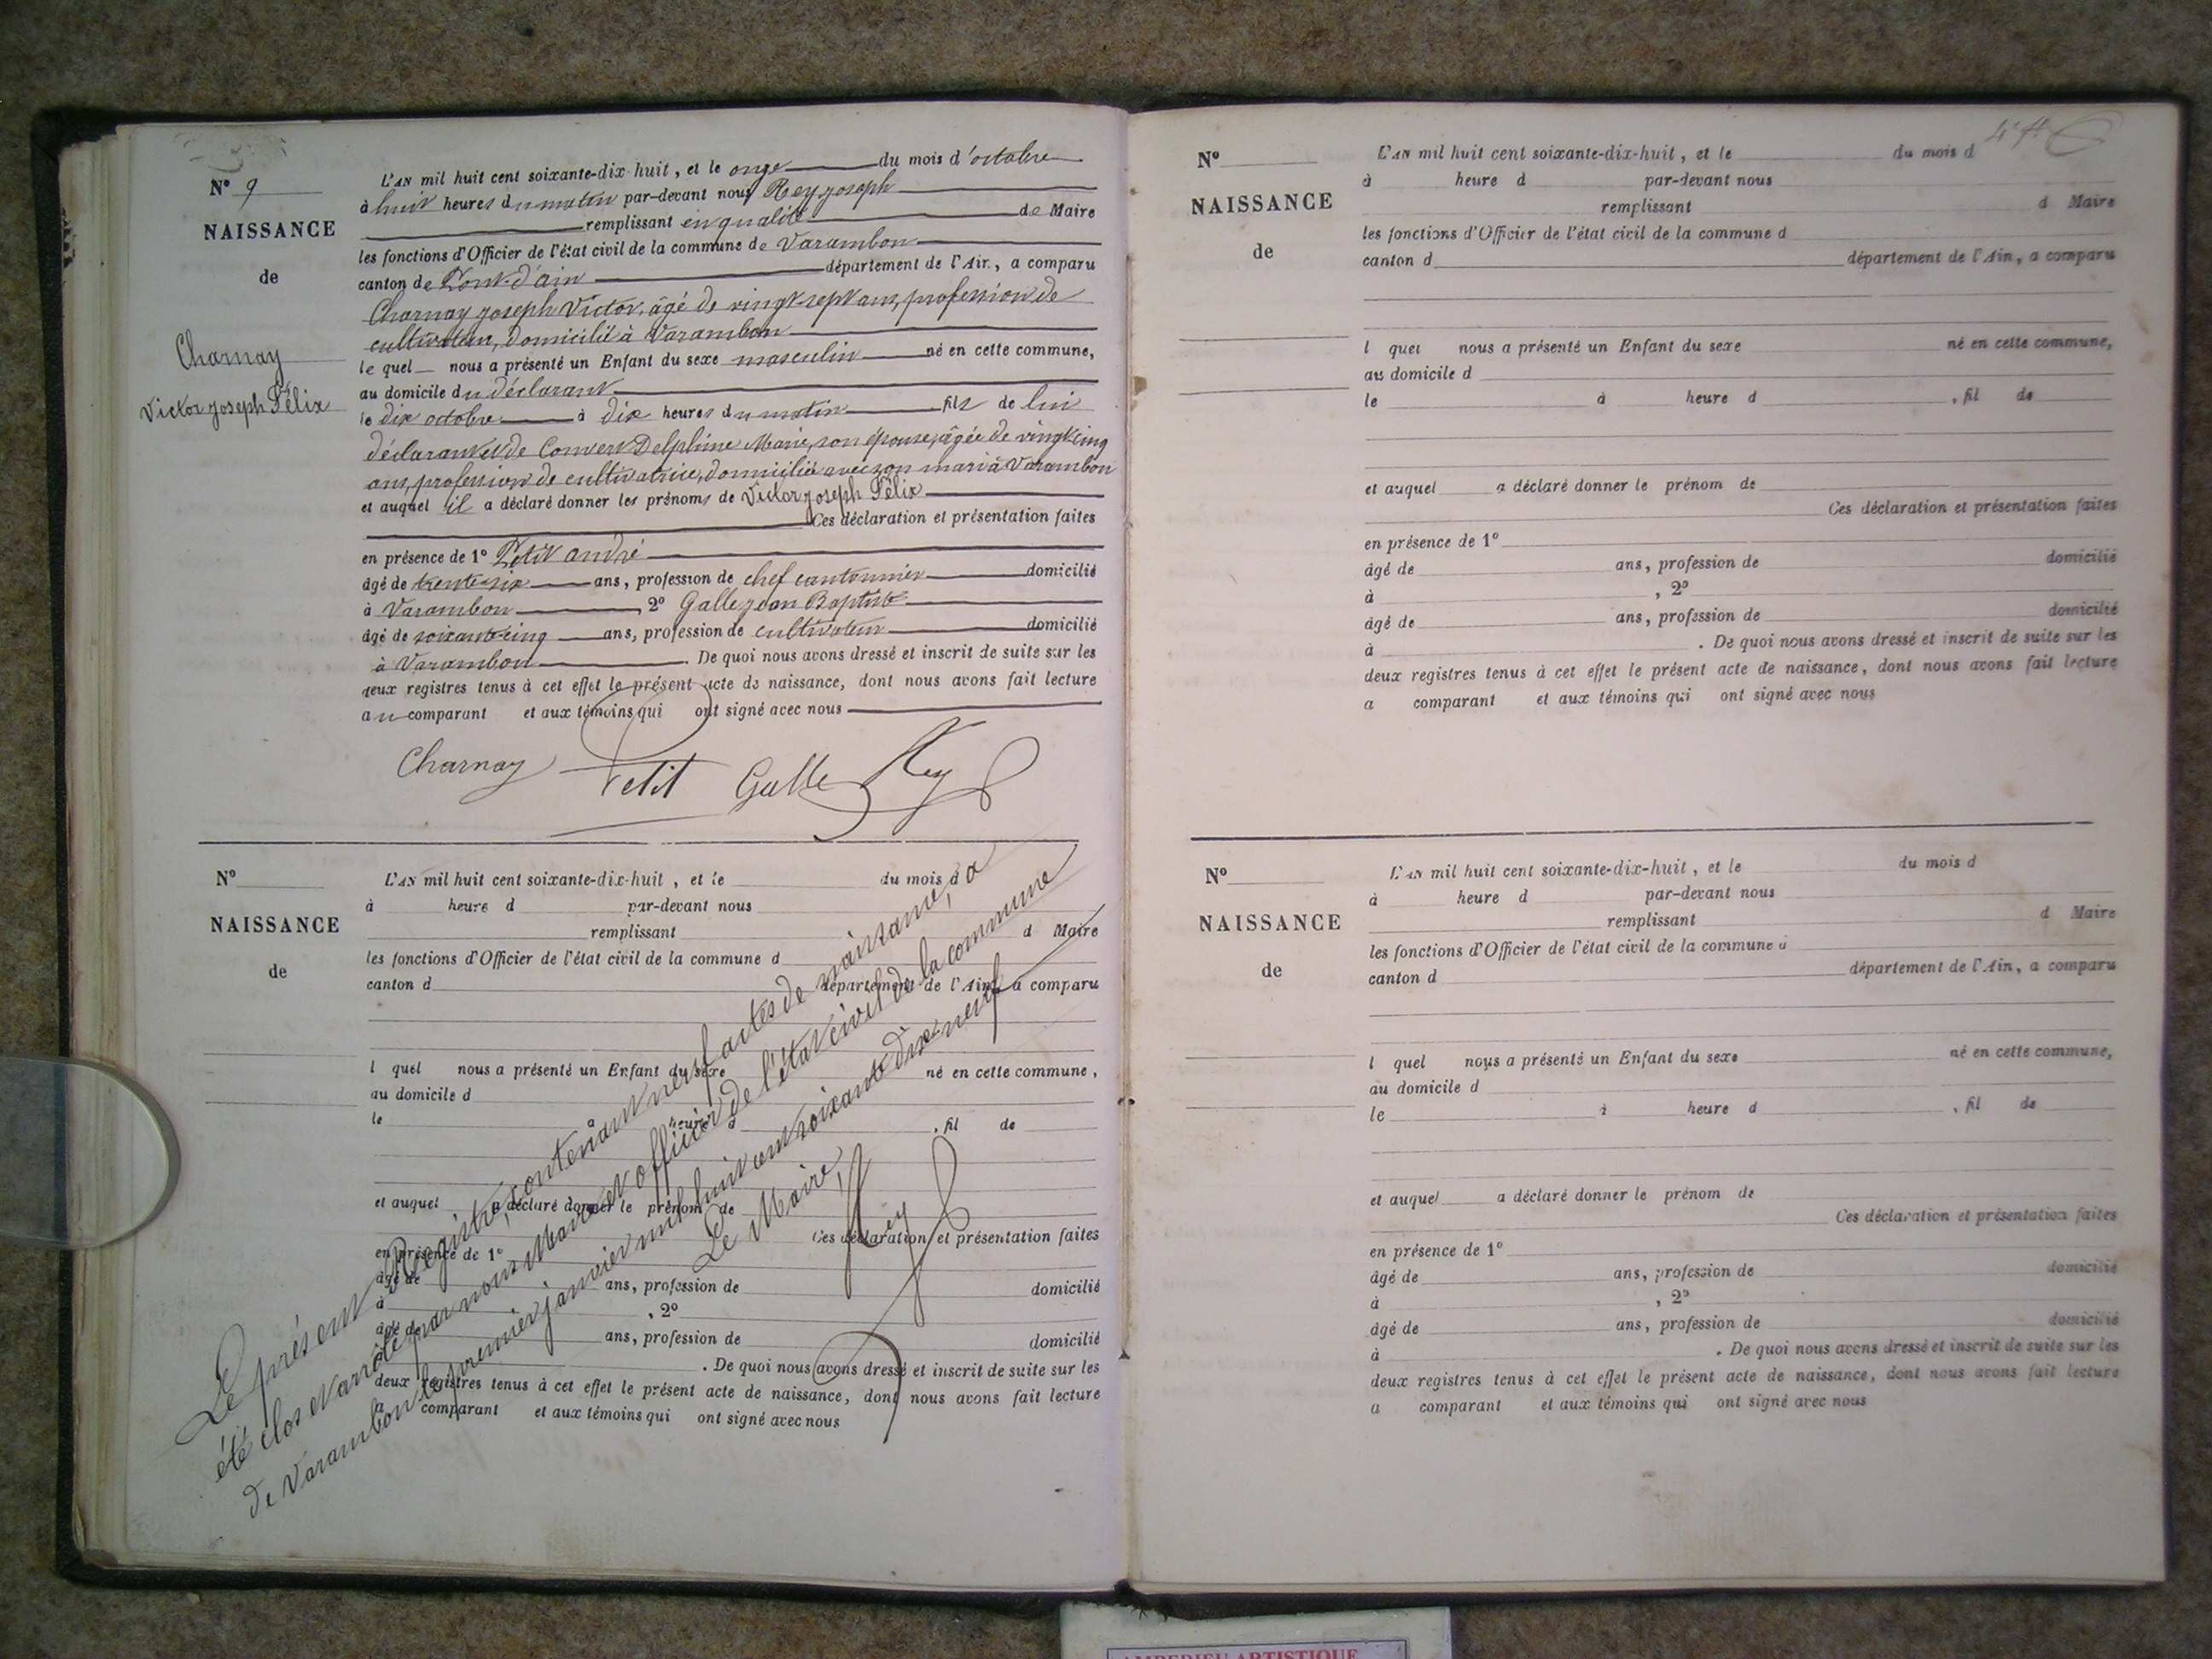 N° 9
NAISSANCE
de
Charnay
Victor Joseph Félix
L'AN mil huit cent soixante-dix-huit, et le onze du mois d'octobre
à huit heures du matin par-devant nous Rey Joseph
remplissant en qualité de Maire
les fonctions d'Officier de l'état civil de la commune de Varambon
canton de Pont-d'ain département de l'Ain, a comparu
Charnay Joseph Victor, âgé de vingt-sept ans, profession de
cultivateur, domicilié à Varambon
le quel nous a présenté un Enfant du sexe masculin né en cette commune,
au domicile du déclarant
le dix octobre à dix heures du matin fils de lui
déclarant et de Convert Delphine Marie, son épouse, âgée de vingt cinq
ans, profession de cultivatrice, domiciliée avec son mari à Varambon
et auquel il a déclaré donner les prénoms de Victor Joseph Félix
Ces déclaration et présentation faites
en présence de 1° Petit andré
âgé de trente-six ans, profession de chef cantonnier domicilié
à Varambon, 2° Galle Jean Baptiste
âgé de soixante cinq ans, profession de cultivateur domicilié
à Varambon. De quoi nous avons dressé et inscrit de suite sur les
deux registres tenus à cet effet le présent acte de naissance, dont nous avons fait lecture
au comparant et aux témoins qui ont signé avec nous
Charnay Petit Galle Rey
N°
NAISSANCE
de
L'AN mil huit cent soixante-dix-huit, et le du mois d
à heure d par-devant nous
remplissant d Maire
les fonctions d'Officier de l'état civil de la commune d
canton d département de l'Ain, a comparu
l quel nous a présenté un Enfant du sexe né en cette commune,
au domicile d
le à heure d , fil de
et auquel a déclaré donner le prénom de
Ces déclaration et présentation faites
en présence de 1°
âgé de ans, profession de domicilié
à , 2°
âgé de ans, profession de domicilié
. De quoi nous avons dressé et inscrit de suite sur les
deux registres tenus à cet effet le présent acte de naissance, dont nous avons fait lecture
a comparant et aux témoins qui ont signé avec nous
Le présent Registre, contenant neuf actes de naissance, a
été clos et arrêté par nous Maire et officier de l'état civil de la commune
de Varambon le premier janvier mil huit cent soixante dix-neuf
Le Maire,
Rey
N°
NAISSANCE
de
L'AN mil huit cent soixante-dix-huit, et le du mois d
à heure d par-devant nous
remplissant d Maire
les fonctions d'Officier de l'état civil de la commune d
canton d département de l'Ain, a comparu
l quel nous a présenté un Enfant du sexe né en cette commune,
au domicile d
le à heure d , fil de
et auquel a déclaré donner le prénom de
Ces déclaration et présentation faites
en présence de 1°
âgé de ans, profession de domicilié
à , 2°
âgé de ans, profession de domicilié
à . De quoi nous avons dressé et inscrit de suite sur les
deux registres tenus à cet effet le présent acte de naissance, dont nous avons fait lecture
a comparant et aux témoins qui ont signé avec nous
N°
NAISSANCE
de
L'AN mil huit cent soixante-dix-huit, et le du mois d
à heure d par-devant nous
remplissant d Maire
les fonctions d'Officier de l'état civil de la commune d
canton d département de l'Ain, a comparu
l quel nous a présenté un Enfant du sexe né en cette commune,
au domicile d
le à heure d , fil de
et auquel a déclaré donner le prénom de
Ces déclaration et présentation faites
en présence de 1°
âgé de ans, profession de domicilié
à , 2°
âgé de ans, profession de domicilié
à . De quoi nous avons dressé et inscrit de suite sur les
deux registres tenus à cet effet le présent acte de naissance, dont nous avons fait lecture
a comparant et aux témoins qui ont signé avec nous
AMBERIEU ARTISTIQUE